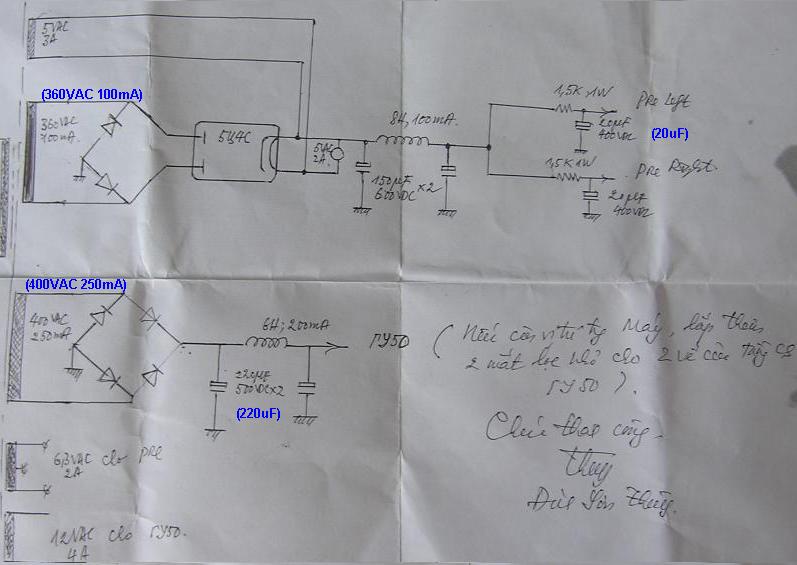 5VAC
3A
(360VAC 100mA)
360VAC
100mA.
5Ц4С
5VAC
2A.
8H, 100mA.
150µF
600VDC x2
1,5K, 1W
Pre Left
20µF
400VDC
(20uF)
1,5K 1W
Pre Right.
20µF
400VDC
(400VAC 250mA)
400VAC
250mA
6H; 200mA
ГУ50
220µF
500VDC x2
(220uF)
( Nếu còn vị trí Máy, lắp thêm
2 mắt lọc nhỏ cho 2 vế của tầng CS
ГУ50 ).
Chúc thành công.
Thủy
6,3VAC cho pre
2A
12VAC cho ГУ50.
4A